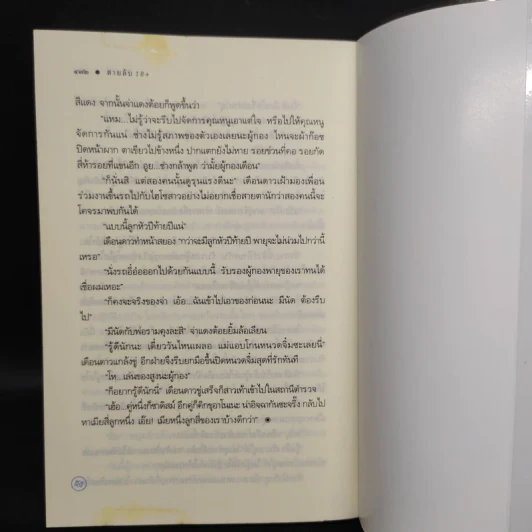 ๑๗๒ ● สายลับ ๒๑๐
สีแดง จากนั้นจ่าแดงต้อยก็พูดขึ้นว่า
"แหม...ไม่รู้ว่าจะรีบไปจัดการคุณหนูเอาแต่ใจ หรือไปให้คุณหนู
จัดการกันแน่ ช่างไม่รู้สภาพของตัวเองเลยนะผู้กอง ไหนจะผ้าก๊อซ
ปิดหน้าผาก ตาเขียวไปข้างหนึ่ง ปากแตกยังไม่หาย รอยช่วนที่คอ รอยกัด
สี่ห้ารอยที่แขนอีก อูย...ช่างกล้าพูด ว่ามั้ยผู้กองเดือน"
"ก็นั่นสิ แต่สองคนนั้นดูรุนแรงดีนะ" เดือนดาวเฝ้ามองเพื่อน
ร่วมงานขึ้นรถไปกับไฮโซสาวอย่างไม่อยากเชื่อสายตานักว่าสองคนนี้จะ
โคจรมาพบกันได้
"แบบนี้ลูกหัวปีท้ายปีแน่"
เดือนดาวทำหน้าสยอง "กว่าจะมีลูกหัวปีท้ายปี พายุจะไม่น่วมไปกว่านี้
เหรอ"
"นั่งรถเอี่ยออกไปด้วยกันแบบนี้ รับรองผู้กองพายุของเราทนได้
เชื่อผมเหอะ"
"ก็คงจะจริงของจ่า เอ้อ...ฉันเข้าไปเอาของก่อนนะ มีนัด ต้องรีบ
ไป"
"มีนัดกับพ่อรามคุงละสิ" จ่าแดงต้อยยิ้มล้อเลียน
"รู้ดีนักนะ เดี๋ยววันไหนเผลอ แม่แอบโกนหนวดจิ๋มซะเลยนี่"
เดือนดาวแกล้งขู่ อีกฝ่ายจึงรีบยกมือขึ้นปิดหนวดจิ๋มสุดที่รักทันที
"โห...เล่นของสูงนะผู้กอง"
"ก็อยากรู้ดีนักนี่" เดือนดาวขู่เสร็จก็สาวเท้าเข้าไปในสถานีตำรวจ
"เฮ้อ...คู่หนึ่งก็ซาดิสม์ อีกคู่ก็คิกขุอาโนเนะ น่าอิจฉากันซะจริ๊ง กลับไป
หาเมียสี่ลูกหนึ่ง เอ้ย! เมียหนึ่งลูกสี่ของเราบ้างดีกว่า" ◉